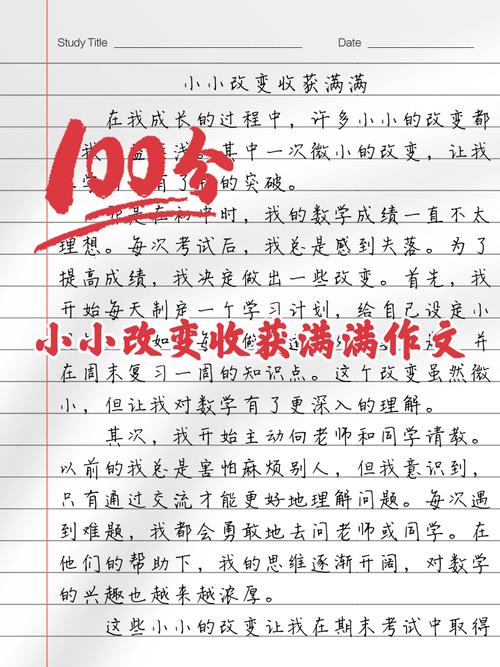 Study Title
Date
小小改变收获满满
在我成长的过程中，许多小小的改变都
100分
我 浅。其中一次微小的改变，让我
有了 的突破。
是在初中时，我的数学成绩一直不太
理想。每次考试后，我总是感到失落。为了
提高成绩，我决定做出一些改变。首先，我
开始每天制定一个学习计划，给自己设定小
小小改变收获满满作文
在周末复习一周的知识点。这个改变虽然微
小，但让我对数学有了更深入的理解。
其次，我开始主动向老师和同学请教。
以前的我总是害怕麻烦别人，但我意识到，
只有通过交流才能更好地理解问题。每次遇
到难题，我都会勇敢地去问老师或同学。在
他们的帮助下，我的思维逐渐开阔，对数学
的兴趣也越来越浓厚。
这些小小的改变让我在期末考试中取得